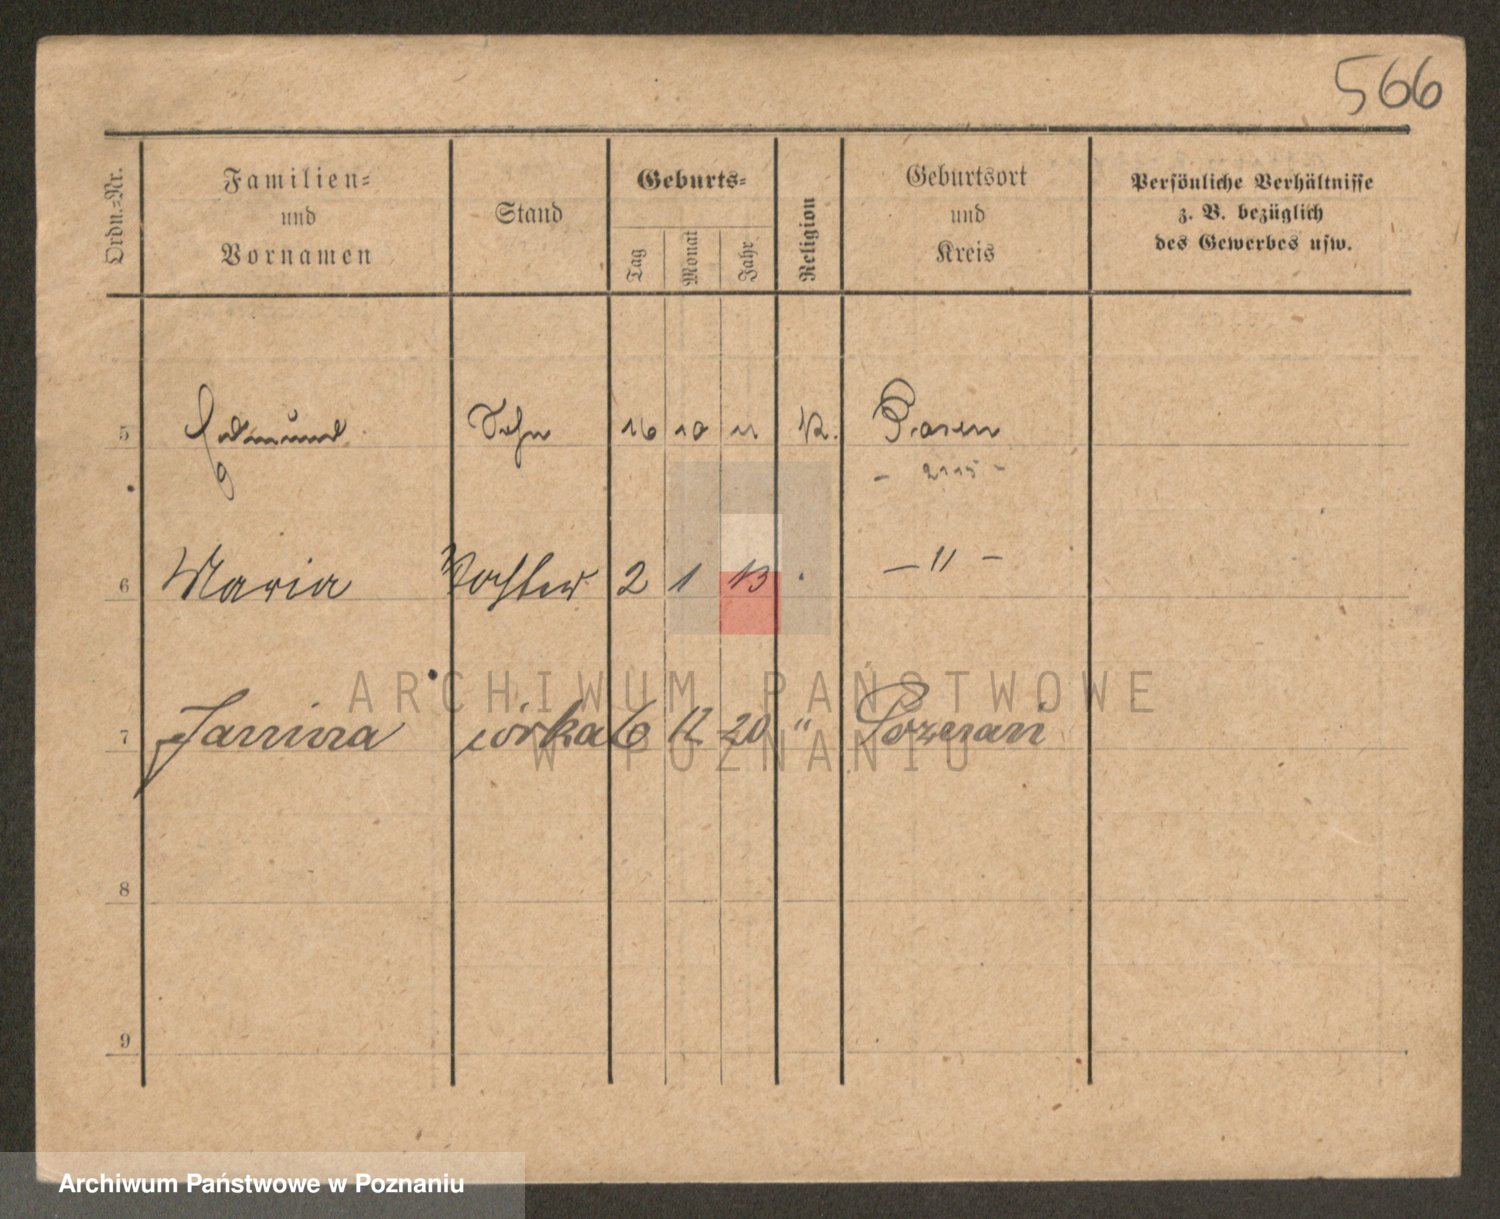 566
Ordn.-Nr.
Familien-
und
Vornamen
Stand
Geburts-
Tag
Monat
Jahr
Religion
Geburtsort
und
Kreis
Persönliche Verhältnisse
z. B. bezüglich
des Gewerbes usw.
5 Edmund Sohn 16 10 11 K. Posen
6 Maria Tochter 2 1 13 — " —
7 Janina córka 6 12 20 " Poznań
8
9
ARCHIWUM PAŃSTWOWE
W POZNANIU
Archiwum Państwowe w Poznaniu